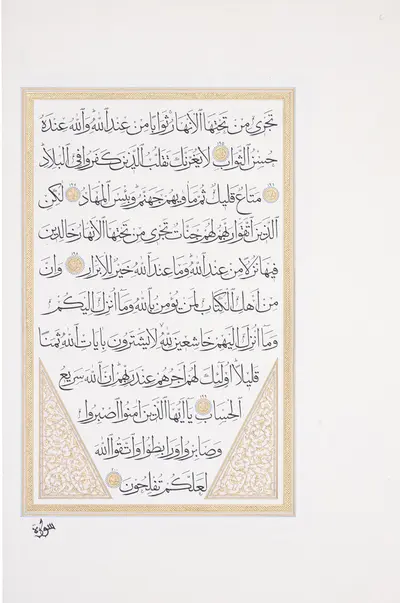 تَجْرِى مِنْ تَحْتِهَا الْأَنْهَارُ ثَوَابًا مِنْ عِنْدِ اللَّهِ وَاللَّهُ عِنْدَهُ
حُسْنُ الثَّوَابِ لَا يَغُرَّنَّكَ تَقَلُّبُ الَّذِينَ كَفَرُوا فِى الْبِلَادِ
مَتَاعٌ قَلِيلٌ ثُمَّ مَأْوَيهُمْ جَهَنَّمُ وَبِئْسَ الْمِهَادُ لَكِنِ
الَّذِينَ اتَّقَوْا رَبَّهُمْ لَهُمْ جَنَّاتٌ تَجْرِى مِنْ تَحْتِهَا الْأَنْهَارُ خَالِدِينَ
فِيهَا نُزُلًا مِنْ عِنْدِ اللَّهِ وَمَا عِنْدَ اللَّهِ خَيْرٌ لِلْأَبْرَارِ وَإِنَّ
مِنْ أَهْلِ الْكِتَابِ لَمَنْ يُؤْمِنُ بِاللَّهِ وَمَا أُنْزِلَ إِلَيْكُمْ
وَمَا أُنْزِلَ إِلَيْهِمْ خَاشِعِينَ لِلَّهِ لَا يَشْتَرُونَ بِآيَاتِ اللَّهِ ثَمَنًا
قَلِيلًا أُولَئِكَ لَهُمْ أَجْرُهُمْ عِنْدَ رَبِّهِمْ إِنَّ اللَّهَ سَرِيعُ
الْحِسَابِ يَا أَيُّهَا الَّذِينَ آمَنُوا اصْبِرُوا
وَصَابِرُوا وَرَابِطُوا وَاتَّقُوا اللَّهَ
لَعَلَّكُمْ تُفْلِحُونَ
سورة